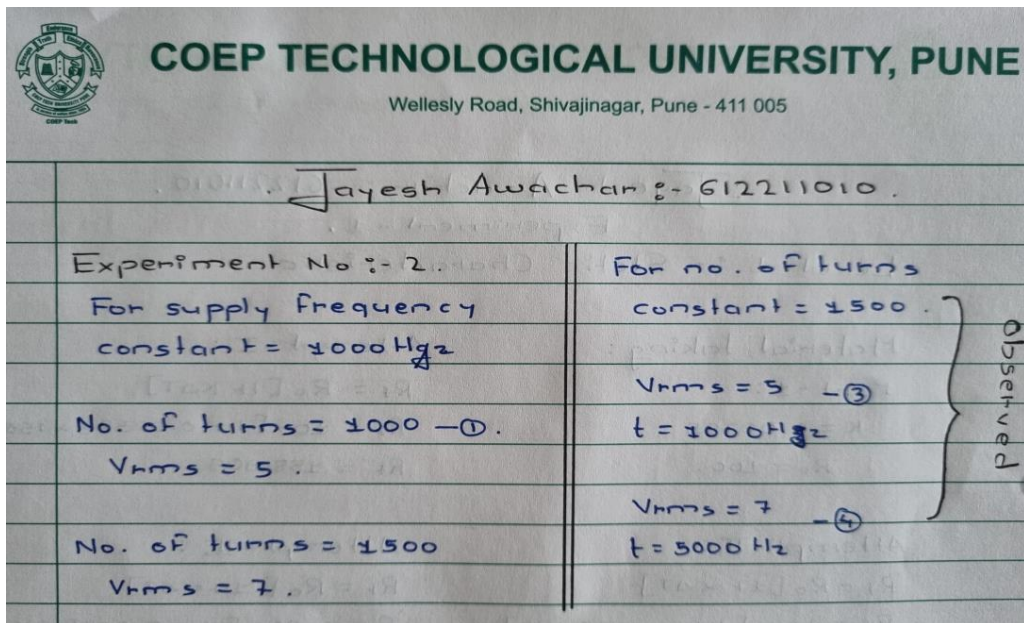 COEP TECHNOLOGICAL UNIVERSITY, PUNE
Wellesly Road, Shivajinagar, Pune - 411 005
COEP Tech
Jayesh Awachar :- 612211010.
Experiment No :- 2.
For supply frequency
constant = 1000 Hz
No. of turns = 1000 - ①.
Vrms = 5.
No. of turns = 1500
Vrms = 7.
For no. of turns
constant = 1500.
Vrms = 5 - ③
t = 1000 Hz
Vrms = 7 - ④
t = 5000 Hz
observed